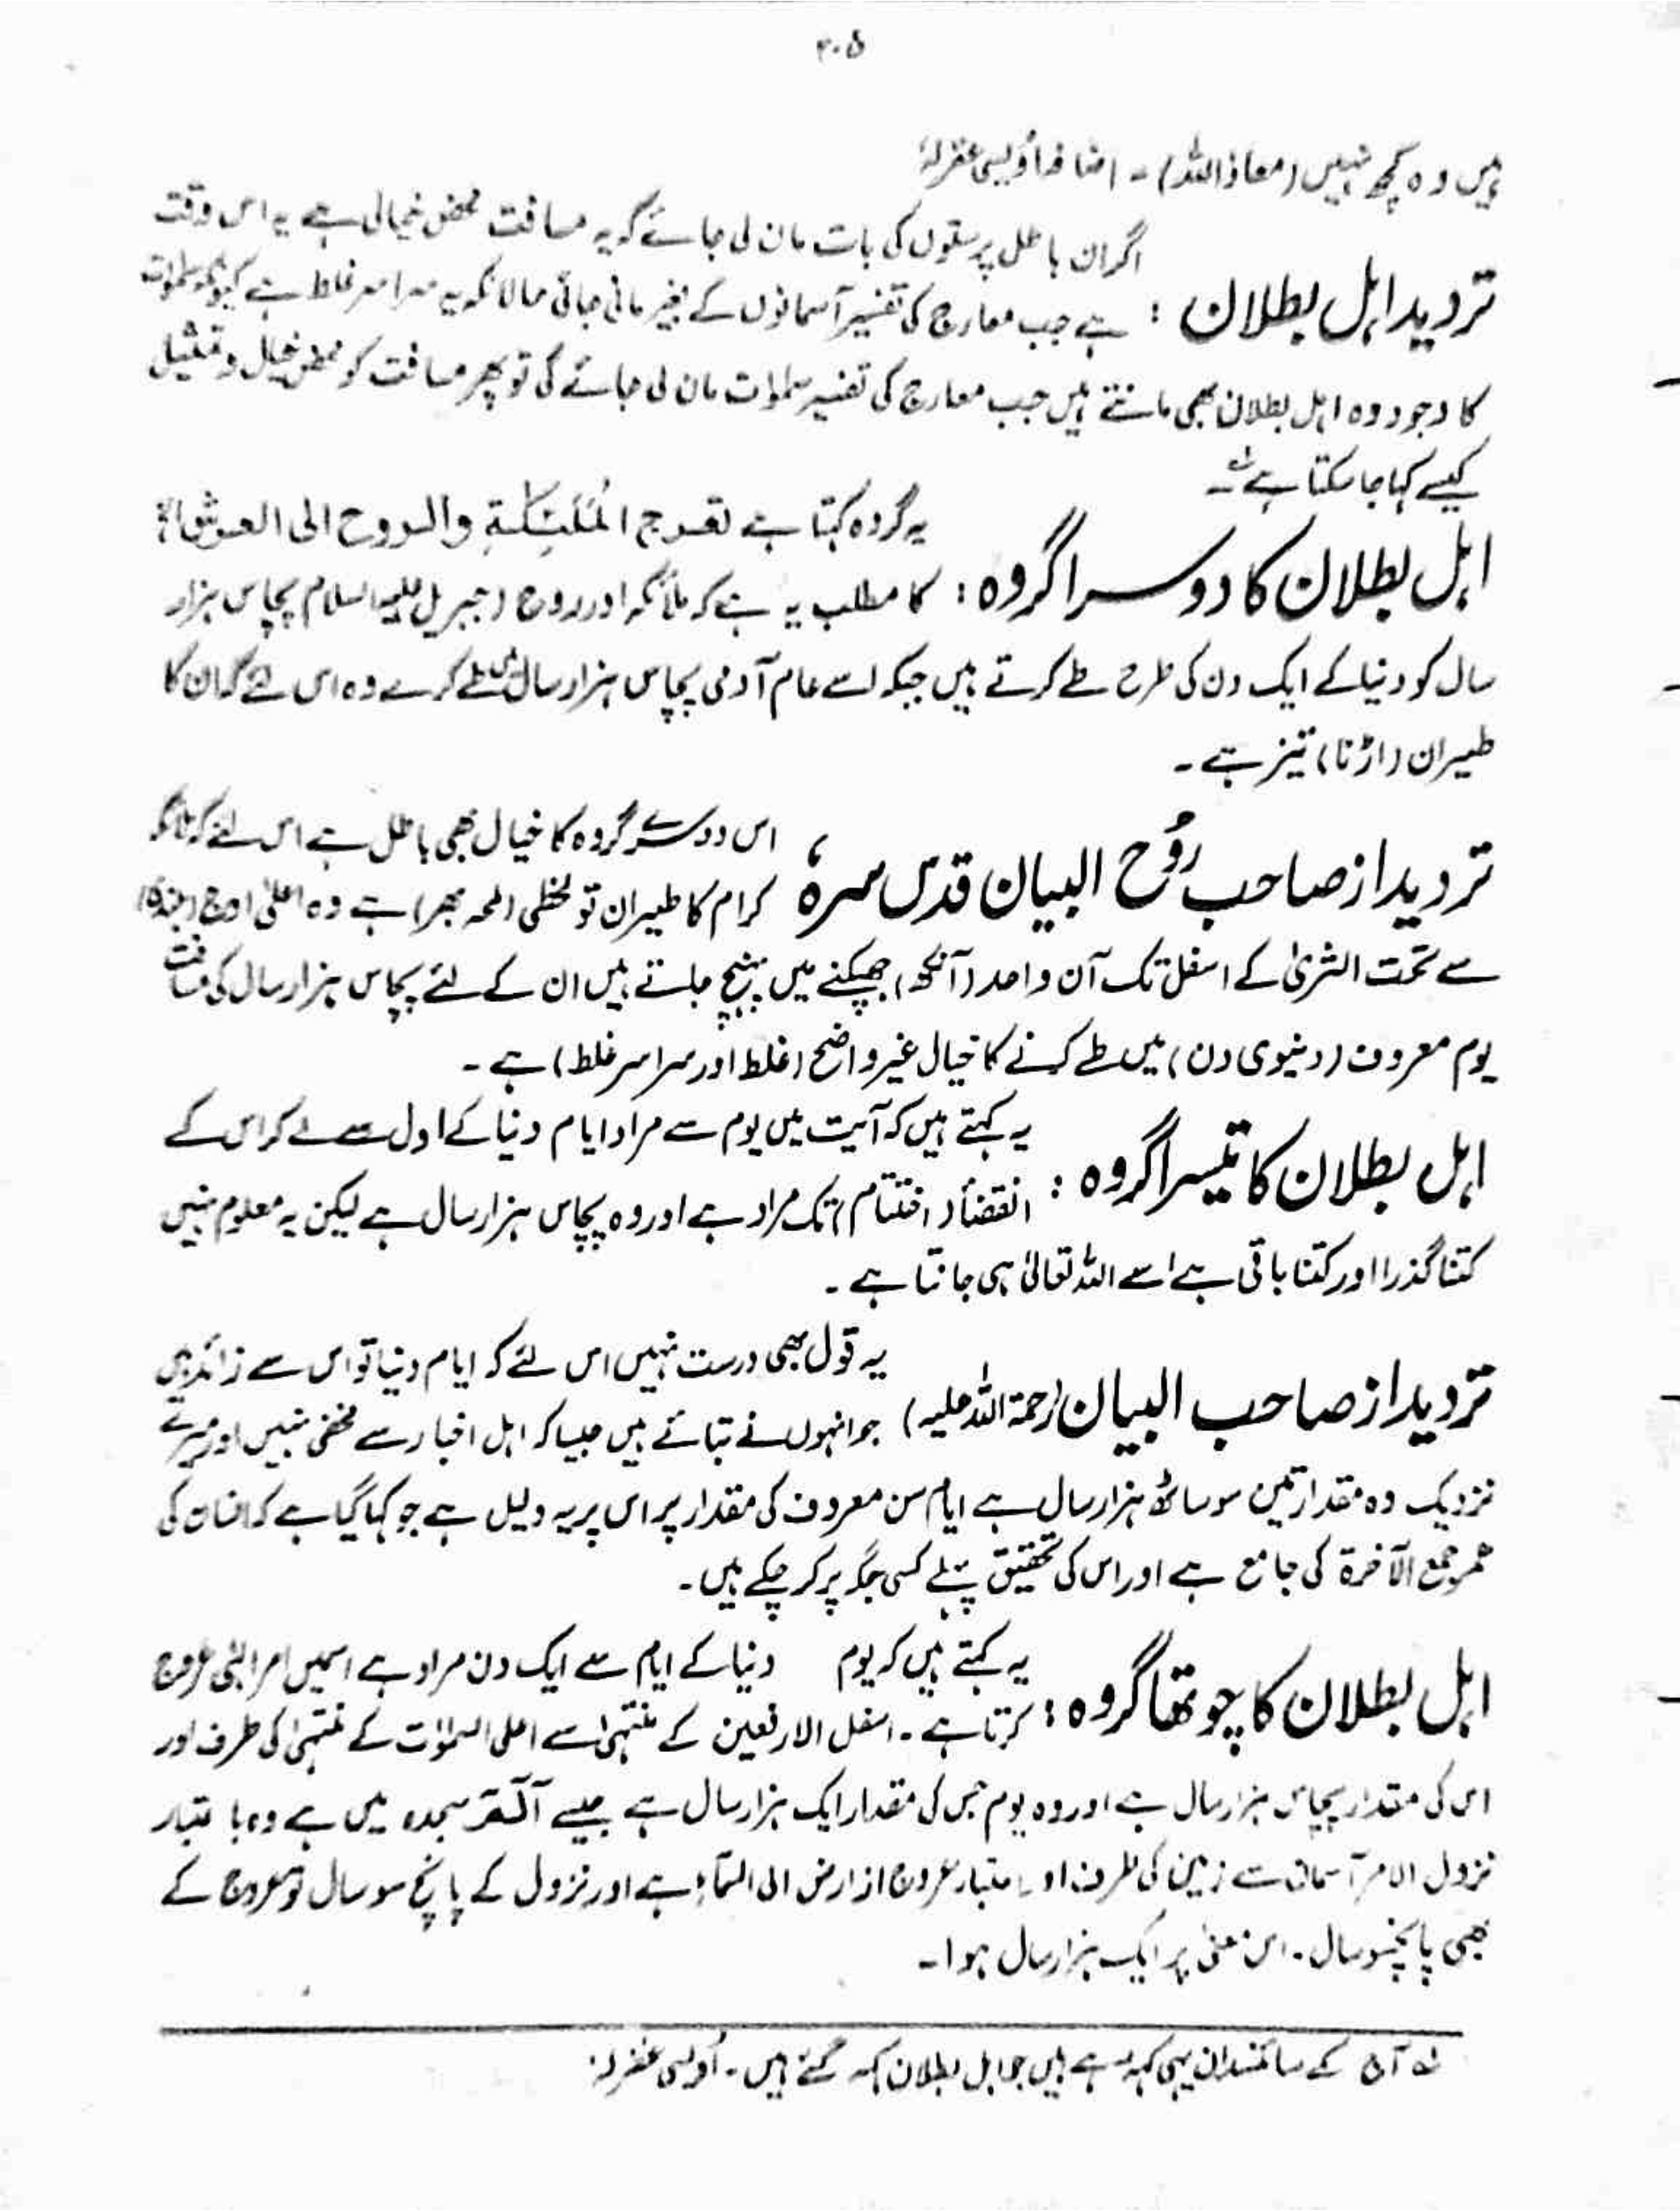 ۳۰۵
ہیں وہ کچھ نہیں (معاذ اللہ) ۔ اضافہ اُویسی غفرلہٗ
تردید اہل بطلان :
اگر ان باطل پرستوں کی بات مان لی جائے گو یہ مسافت محض خیالی ہے یہ اس وقت
ہے جب معارج کی تفسیر آسمانوں کے بغیر مانی جائی حالانکہ یہ سراسر غلط ہے کیونکہ سمٰوٰت
کا وجود وہ اہل بطلان بھی مانتے ہیں جب معارج کی تفسیر سمٰوات مان لی جائے گی تو پھر مسافت کو محض خیال و تمثیل
کیسے کہا جا سکتا ہے؎۱۔
اہل بطلان کا دوسرا گروہ :
یہ گروہ کہتا ہے تعرج الملٰئکۃ والروح الی العرش الخ
کا مطلب یہ ہے کہ ملائکہ اور روح (جبریل علیہ السلام پچاس ہزار
سال کو دنیا کے ایک دن کی طرح طے کرتے ہیں جبکہ اسے عام آدمی پچاس ہزار سال میں طے کرے وہ اس لئے کہ ان کا
طیران (اڑنا) تیز ہے ۔
تردید از صاحب رُوح البیان قدس سرہٗ ،
اس دوسرے گروہ کا خیال بھی باطل ہے اس لئے کہ ملائکہ
کرام کا طیران تو لحظی (لمحہ بھر) ہے وہ اعلٰی اوج
سے تحت الثریٰ کے اسفل تک آن واحد (آنکھ) جھپکنے میں پہنچ جاتے ہیں ان کے لئے پچاس ہزار سال کی مسافت
یوم معروف (دنیوی دن) میں طے کرنے کا خیال غیر واضح (غلط اور سراسر غلط) ہے ۔
اہل بطلان کا تیسرا گروہ :
یہ کہتے ہیں کہ آیت میں یوم سے مراد ایام دنیا کے اول سے لے کر اس کے
انقضأ (اختتام) تک مراد ہے اور وہ پچاس ہزار سال ہے لیکن یہ معلوم نہیں
کتنا گذرا اور کتنا باقی ہے اسے اللہ تعالیٰ ہی جانتا ہے ۔
تردید از صاحب البیان (رحمۃ اللہ علیہ)
یہ قول بھی درست نہیں اس لئے کہ ایام دنیا تو اس سے زائد ہیں
جو انہوں نے بتائے ہیں جیسا کہ اہل اخبار سے مخفی نہیں اور میرے
نزدیک وہ مقدار تین سو ساٹھ ہزار سال ہے ایام سن معروف کی مقدار پر اس پر یہ دلیل ہے جو کہا گیا ہے کہ انسان کی
عمر جمع الآخرۃ کی جامع ہے اور اس کی تحقیق پہلے کسی جگہ پر کر چکے ہیں ۔
اہل بطلان کا چوتھا گروہ :
یہ کہتے ہیں کہ یوم دنیا کے ایام سے ایک دن مراد ہے اسمیں امر الٰہی عروج
کرتا ہے ۔ اسفل الارضین کے منتہٰی سے اعلی السمٰوٰت کے منتہٰی کی طرف اور
اس کی مقدار پچاس ہزار سال ہے اور وہ یوم جس کی مقدار ایک ہزار سال ہے جیسے آلٓمّ سجدہ میں ہے وہ با عتبار
نزول الامر آسمان سے زمین کی طرف او باعتبار عروج از ارض الی السمآء ہے اور نزول کے پانچ سو سال تو عروج کے
بھی پانچسو سال ۔ اس معنٰی پر ایک ہزار سال ہوا ۔
؎۱ آج کے سائنسدان یہی کہہ رہے ہیں جو اہل بطلان کہہ گئے ہیں ۔ اُویسی غفرلہٗ